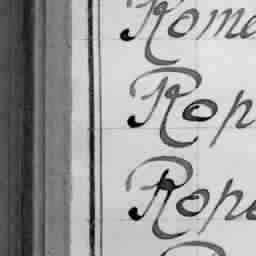 Rome
Rop
Rope